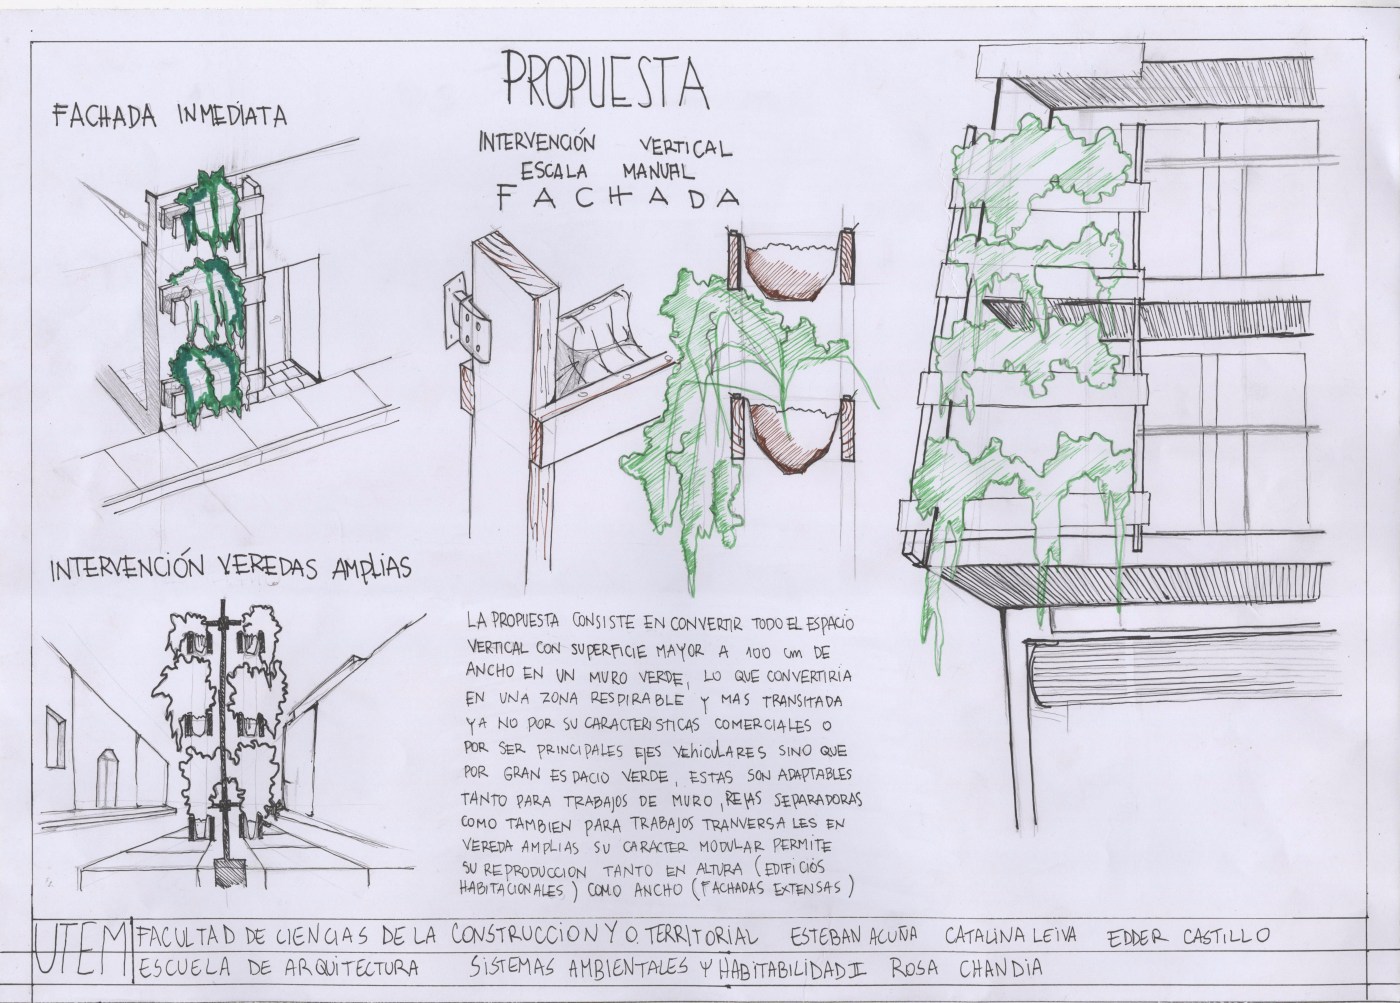 PROPUESTA
INTERVENCIÓN VERTICAL
ESCALA MANUAL
FACHADA
FACHADA INMEDIATA
INTERVENCIÓN VEREDAS AMPLIAS
LA PROPUESTA CONSISTE EN CONVERTIR TODO EL ESPACIO
VERTICAL CON SUPERFICIE MAYOR A 100 cm DE
ANCHO EN UN MURO VERDE, LO QUE CONVERTIRIA
EN UNA ZONA RESPIRABLE Y MAS TRANSITADA
YA NO POR SU CARACTERISTICAS COMERCIALES O
POR SER PRINCIPALES EJES VEHICULARES SINO QUE
POR GRAN ESPACIO VERDE, ESTAS SON ADAPTABLES
TANTO PARA TRABAJOS DE MURO, REJAS SEPARADORAS
COMO TAMBIEN PARA TRABAJOS TRANVERSALES EN
VEREDA AMPLIAS SU CARACTER MODULAR PERMITE
SU REPRODUCCION TANTO EN ALTURA (EDIFICIOS
HABITACIONALES) COMO ANCHO (FACHADAS EXTENSAS)
UTEM
FACULTAD DE CIENCIAS DE LA CONSTRUCCION Y O. TERRITORIAL ESTEBAN ACUÑA CATALINA LEIVA EDDER CASTILLO
ESCUELA DE ARQUITECTURA SISTEMAS AMBIENTALES Y HABITABILIDAD II ROSA CHANDIA